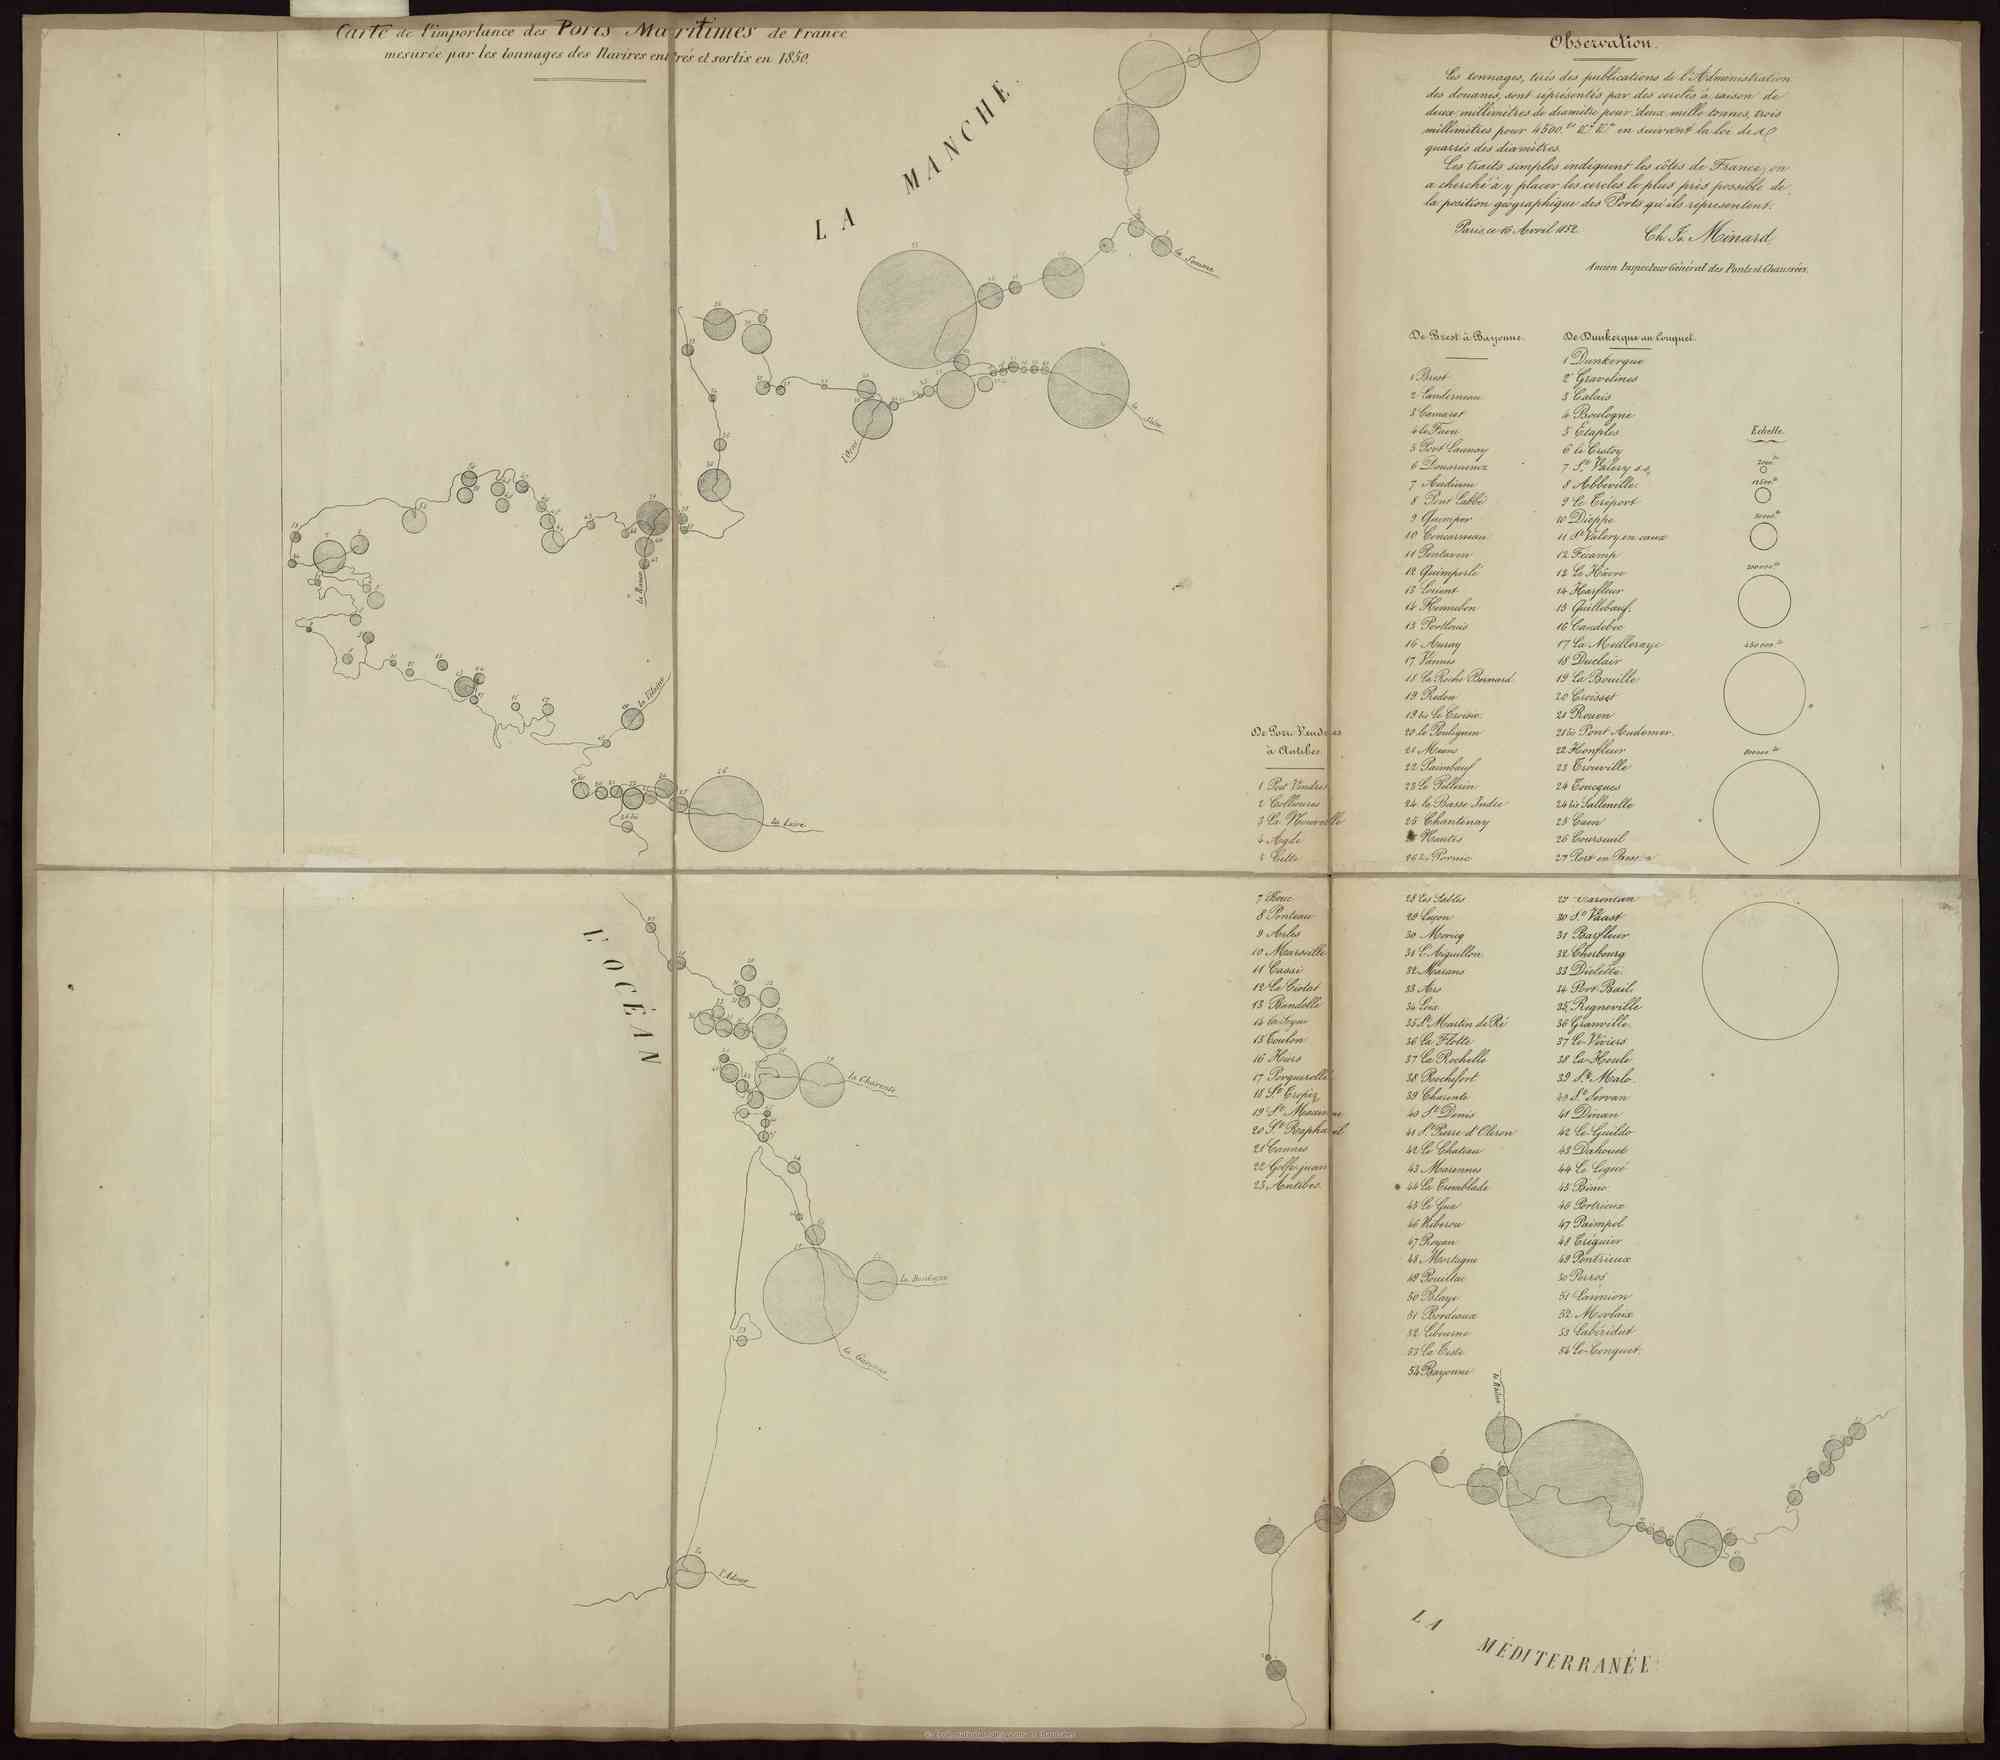 Carte de l'importance des Ports Maritimes de France
mesurée par les tonnages des Navires entrés et sortis en 1850.
LA MANCHE
la Somme
la Seine
l'Orne
la Rance
la Vilaine
la Loire
L'OCÉAN
la Charente
la Dordogne
la Garonne
l'Adour
le Rhône
LA MÉDITERRANÉE
Observation.
Les tonnages, tirés des publications de l'Administration
des douanes, sont représentés par des cercles à raison de
deux millimètres de diamètre pour deux mille tonnes, trois
millimètres pour 4500. en suivant la loi des
quarrés des diamètres.
Les traits simples indiquent les côtes de France; on
a cherché à y placer les cercles le plus près possible de
la position géographique des Ports qu'ils représentent.
Paris, ce 16 Avril 1852.
Ch. J. Minard,
Ancien Inspecteur Général des Ponts et Chaussées.
De Port-Vendres
à Antibes.
1 Port Vendres
2 Collioures
3 La Nouvelle
4 Agde
5 Cette
7 Bouc
8 Ponteau
9 Arles
10 Marseille
11 Cassi
12 La Ciotat
13 Bandolle
14 La Seyne
15 Toulon
16 Hières
17 Porquerolles
18 St. Tropez
19 Ste. Maxime
20 St. Raphael
21 Cannes
22 Golfe juan
23 Antibes.
De Brest à Bayonne.
1 Brest
2 Landerneau
3 Camaret
4 le Faou
5 Port Launay
6 Douarnenez
7 Audierne
8 Pont Labbé
9 Quimper
10 Concarneau
11 Pontaven
12 Quimperlé
13 Lorient
14 Hennebon
15 Portlouis
16 Auray
17 Vannes
18 La Roche Bernard.
19 Redon
19 bis Le Croisic.
20 le Pouliguen
21 Méans
22 Paimbœuf
23 Le Pellerin
24 la Basse Indre
25 Chantenay
26 Nantes
26 bis Pornic
28 Les Sables
29 Luçon
30 Moricq
31 L'Aiguillon.
32 Marans
33 Ars
34 Loix
35 St. Martin de Ré
36 La Flotte
37 La Rochelle
38 Rochefort
39 Charente
40 St. Denis
41 St. Pierre d'Oleron
42 Le Chateau
43 Marennes
44 La Tremblade
45 Le Gua
46 Riberou
47 Royan
48 Mortagne
49 Pouillac
50 Blaye
51 Bordeaux
52 Libourne
53 La Teste
54 Bayonne
De Dunkerque au Conquet.
1 Dunkerque
2 Gravelines
3 Calais
4 Boulogne
5 Etaples
6 le Crotoy
7 St. Valery s.s.
8 Abbeville.
9 Le Tréport
10 Dieppe
11 St. Valery en caux
12 Fécamp
13 Le Hâvre
14 Harfleur
15 Quillebœuf.
16 Caudebec
17 La Meilleraye
18 Duclair
19 La Bouille
20 Croisset
21 Rouen
21 bis Pont Audemer.
22 Honfleur
23 Trouville
24 Toucques
24 bis Sallenelle
25 Caen
26 Courseuil
27 Port en Bessin
29 Carentan
30 St. Vaast
31 Barfleur
32 Cherbourg
33 Dielette.
34 Port Bail.
35 Regneville
36 Granville.
37 Le Viviers
38 La Houle
39 St. Malo.
40 St. Servan
41 Dinan
42 Le Guildo
43 Dahouet
44 Le Légué
45 Binic
46 Portrieux
47 Paimpol
48 Tréguier
49 Pontrieux
50 Perros
51 Lannion
52 Morlaix
53 Labérildut
54 Le Conquet.
Echelle.
2000
12500
50000
200000
450000
800000